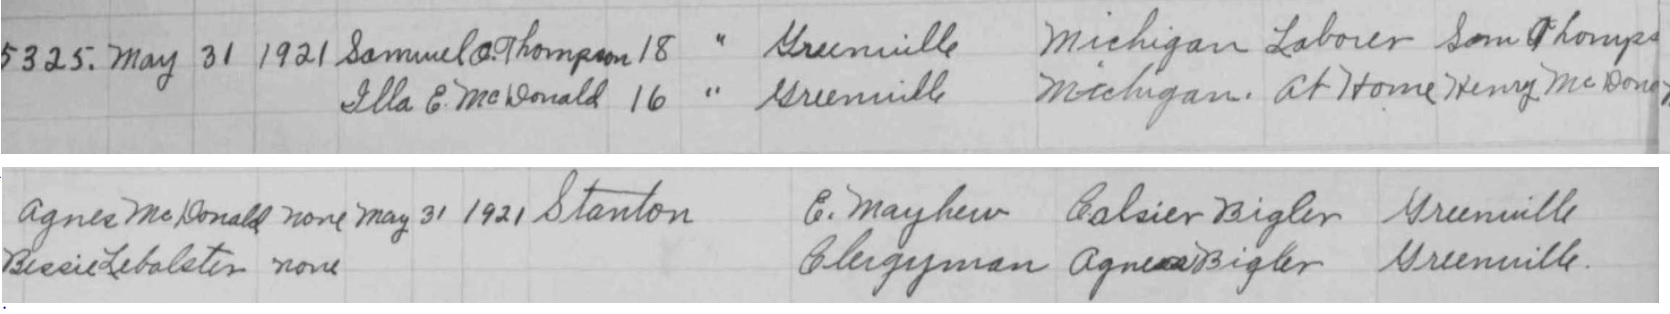 5325. May 31 1921 Samuel O. Thompson 18 " Greenville Michigan Laborer Sam Thomps
Illa E. McDonald 16 " Greenville Michigan. At Home Henry McDona
Agnes McDonald none May 31 1921 Stanton E. Mayhew Calsier Bigler Greenville
Bessie Lebalster none Clergyman Agnes Bigler Greenville.